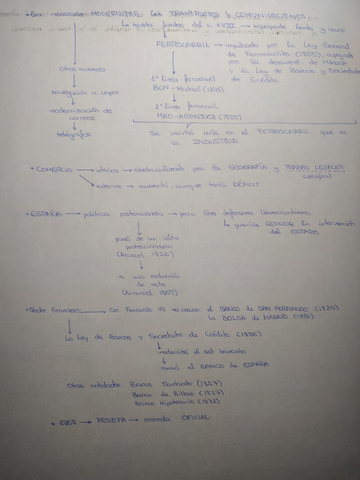 • Era necesario MODERNIZAR los TRANSPORTES Y COMUNICACIONES
hasta finales del s. XVIII → transporte lento y caro
FERROCARRIL → impulsado por la Ley General
de Ferrocarriles (1855), apoyada
por la desamort. de MADOZ
y la Ley de Bancos y Sociedades
de Crédito
otros avances
1ª línea ferrocarril
BCN - Mataró (1848)
navegación a vapor
modernización de
correos
telégrafos
2ª línea ferrocarril
MAD - ARANJUEZ
Se invirtió más en el FERROCARRIL que en
la INDUSTRIA
• COMERCIO → interior → obstaculizado por la GEOGRAFÍA y TRABAS LEGALES
exterior → aumentó, aunque tenía DÉFICIT
• ESPAÑA → política proteccionista → para los defensores librecambismo
querían REDUCIR la intervención
del ESTADO
pasó de un alto
proteccionismo
(Arancel 1820)
a una reducción
de este
(Arancel 1869)
• Sector Financiero → Con Fernando VII se crearon el BANCO DE SAN FERNANDO (1829)
la BOLSA DE MADRID (1831)
La Ley de Bancos y Sociedades de Crédito (1856)
modernizó el sist. bancario
nació el BANCO DE ESPAÑA
Otras entidades: Banco Santander (1857)
Banco de Bilbao (1857)
Banco Hipotecario (1872)
• 1868 → PESETA → moneda OFICIAL